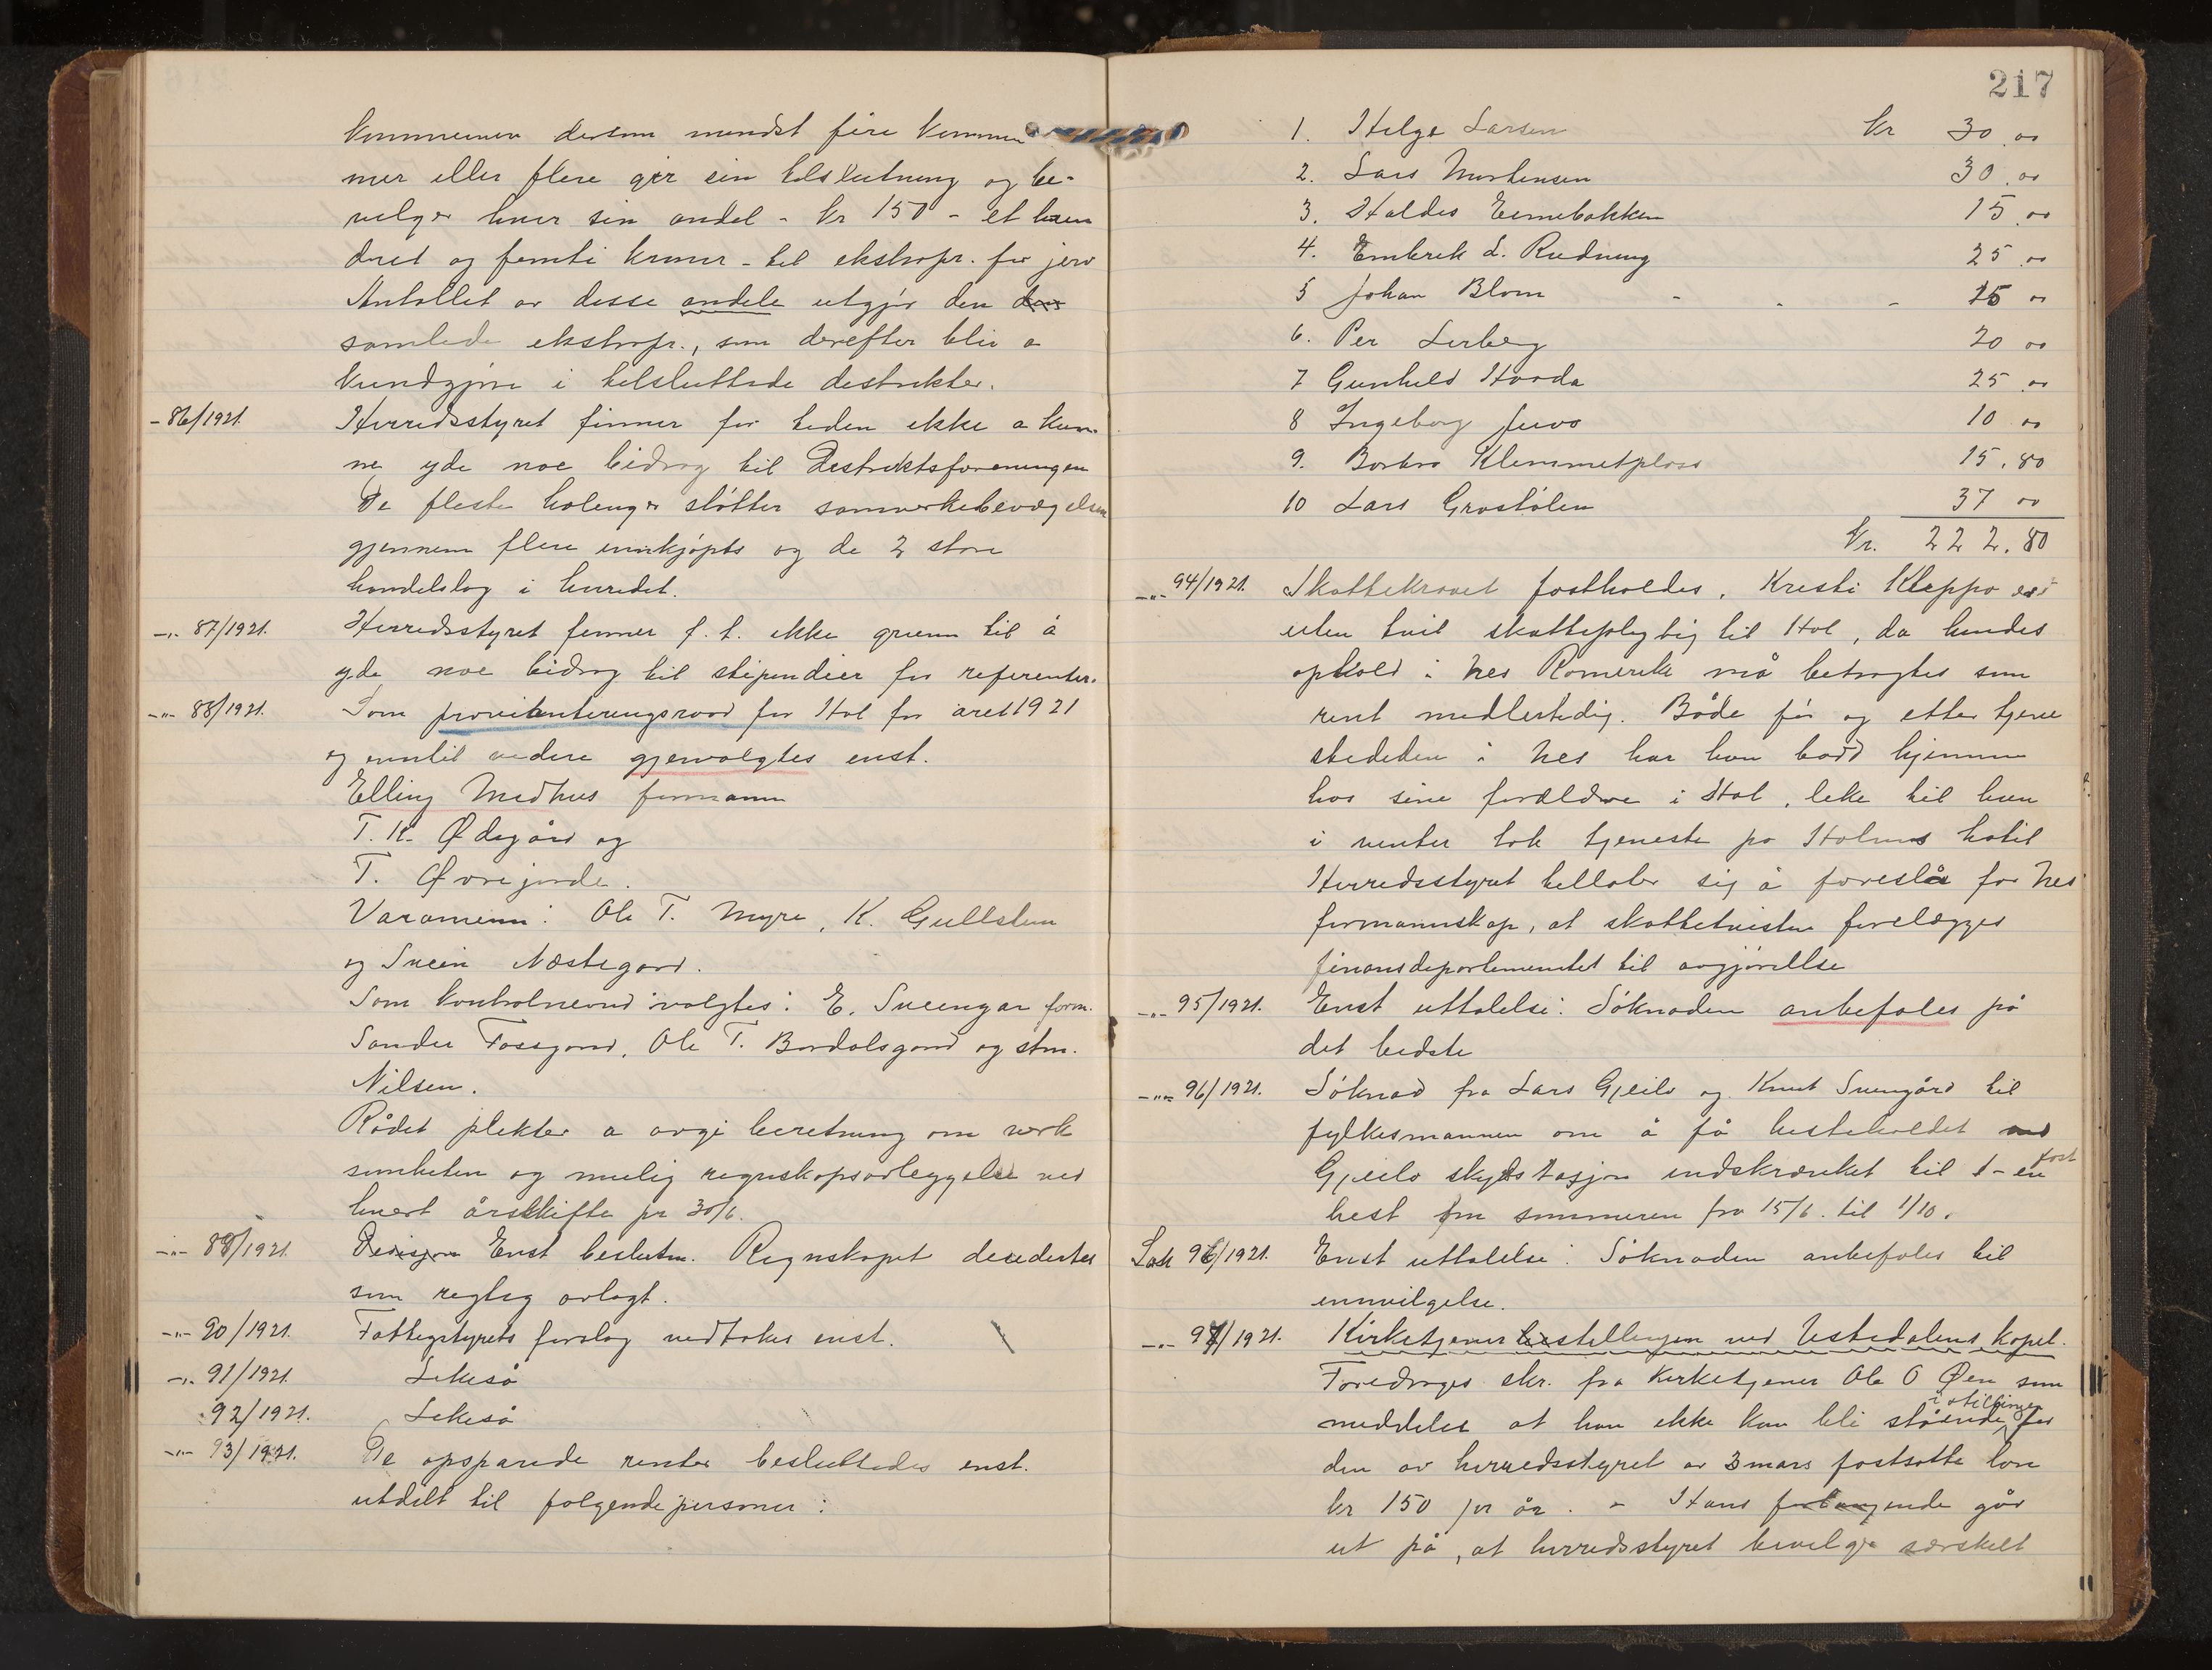 kommunen dersom mindst fire kommu
ner eller flere gir sin tilslutning og be-
vilger hver sin andel - kr 150 - et hun
dret og femti kroner - til ekstrapr. for jerv
Antallet av desse andele utgjør den den
samlede ekstrapr., som derefter blir a
kundgjøre i tilsluttede destrikter.
- 86/1921. Herredsstyret finner for tiden ikke a kun-
ne yde noe bidrag til Destriktsforeningen
De fleste holenger støtter samvirkebevægelsen
gjennem flere innkjøpts og de 2 store
handelslag i herredet.
-"- 87/1921. Herredsstyret finner f. t. ikke grunn til å
yde noe bidrag til stipendier for referenter.
-"- 88/1921. Som provianteringsraad for Hol for aret 1921
og inntil videre gjenvalgtes enst.
Elling Medhus formann
T. K. Ødegård og
T. Øvrejorde.
Varamenn: Ole T. Myre, K. Gullsteen
og Svein Næstegard.
Som kontrolnevnd valgtes: E. Sveengar form.
Sander Fossgard, Ole T. Bardolsgard og stm.
Nilsen.
Rådet plikter a avgi beretning om verk
somheten og mulig regnskapsavleggelse ved
hvert årsskifte pr 30/6.
-"- 89/1921. Desisjon Enst beslutn. Regnskapet decidertes
som regtig avlagt.
-"- 90/1921. Fattigstyrets forslag vedtokes enst.
-"- 91/1921. Likeså
92/1921. Likeså
-"- 93/1921. De opsparede renter besluttedes enst.
utdelt til følgende personer:
217
1. Helge Larsen kr 30.00
2. Lars Mortensen 30.00
3. Haldis Eimebakken 15.00
4. Embrik L. Rudning 25.00
5 Johan Blom - - - 15 00
6. Per Lerberg 20 00
7 Gunhild Hovda 25.00
8 Ingeborg Juvo 10 00
9. Barbro Klemmetplass 15.80
10 Lars Grøstølen 37 00
Kr. 222.80
-"- 94/1921. Skattekravet fastholdes. Kristi Kleppo er
uten tvil skattepligtig til Hol, da hendes
ophold i Nes Romerike må betragtes som
rent midlertidig. Både før og etter tjene
stetiden i Nes har hun bodd hjemme
hos sine foreldre i Hol, like til hun
i vinter tok tjeneste pa Holms hotel
Herredsstyret tillater sig å foreslå for Nes
formannskap, at skattetvisten forelægges
finansdepartementet til avgjørellse
-"- 95/1921. Enst uttalelse: Søknaden anbefales på
det bedste
-"- 96/1921. Søknad fra Lars Gjeilo og Knut Svengård til
fylkesmannen om å få hesteholdet ved
Gjeilo skydsstasjon indskrænket til 1 - en fast
hest om sommeren fra 15/6. til 1/10.
Sak 96/1921. Enst uttalelse: Søknaden anbefales til
innvilgelse.
-"- 97/1921. Kirketjenerbestillingen ved Ustedalens kapel.
Foredroges skr. fra kirketjener Ole O Øen som
meddeler at han ikke kan bli stående i stillingen for
den av herredsstyret av 3 mars fastsatte løn
kr 150 pr år. - Hans forlangende går
ut på, at herredsstyret bevilger særskilt